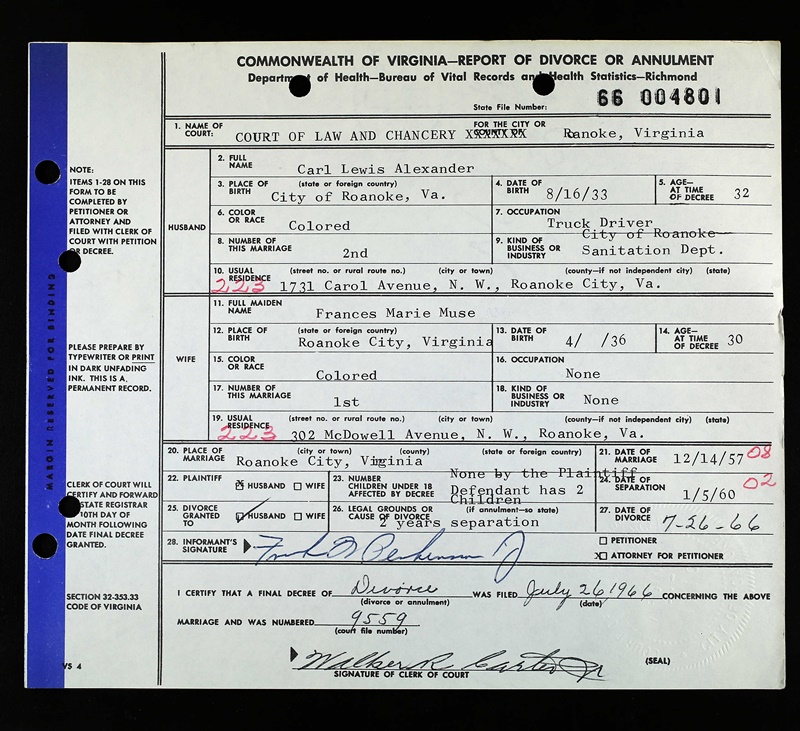 COMMONWEALTH OF VIRGINIA—REPORT OF DIVORCE OR ANNULMENT
Department of Health—Bureau of Vital Records and Health Statistics—Richmond
State File Number: 66 004801
1. NAME OF COURT: COURT OF LAW AND CHANCERY XXXXXXX FOR THE CITY OR COUNTY OF Roanoke, Virginia
NOTE:
ITEMS 1-28 ON THIS
FORM TO BE
COMPLETED BY
PETITIONER OR
ATTORNEY AND
FILED WITH CLERK OF
COURT WITH PETITION
OR DECREE.
PLEASE PREPARE BY
TYPEWRITER OR PRINT
IN DARK UNFADING
INK. THIS IS A
PERMANENT RECORD.
CLERK OF COURT WILL
CERTIFY AND FORWARD
STATE REGISTRAR
10TH DAY OF
MONTH FOLLOWING
DATE FINAL DECREE
GRANTED.
SECTION 32-353.33
CODE OF VIRGINIA
VS 4
MARGIN RESERVED FOR BINDING
HUSBAND
2. FULL NAME Carl Lewis Alexander
3. PLACE OF BIRTH (state or foreign country) City of Roanoke, Va.
4. DATE OF BIRTH 8/16/33
5. AGE— AT TIME OF DECREE 32
6. COLOR OR RACE Colored
7. OCCUPATION Truck Driver
8. NUMBER OF THIS MARRIAGE 2nd
9. KIND OF BUSINESS OR INDUSTRY City of Roanoke Sanitation Dept.
10. USUAL RESIDENCE (street no. or rural route no.) (city or town) (county—if not independent city) (state)
223 1731 Carol Avenue, N. W., Roanoke City, Va.
WIFE
11. FULL MAIDEN NAME Frances Marie Muse
12. PLACE OF BIRTH (state or foreign country) Roanoke City, Virginia
13. DATE OF BIRTH 4/ /36
14. AGE— AT TIME OF DECREE 30
15. COLOR OR RACE Colored
16. OCCUPATION None
17. NUMBER OF THIS MARRIAGE 1st
18. KIND OF BUSINESS OR INDUSTRY None
19. USUAL RESIDENCE (street no. or rural route no.) (city or town) (county—if not independent city) (state)
223 302 McDowell Avenue, N. W., Roanoke, Va.
20. PLACE OF MARRIAGE (city or town) (county) (state or foreign country) Roanoke City,
21. DATE OF MARRIAGE 12/14/57 08
22. PLAINTIFF X HUSBAND WIFE
23. NUMBER CHILDREN UNDER 18 AFFECTED BY DECREE None by the Plaintiff Defendant has 2 Children
24. DATE OF SEPARATION 1/5/60 02
25. DIVORCE GRANTED TO HUSBAND WIFE
26. LEGAL GROUNDS OR CAUSE OF DIVORCE (if annulment—so state) 2 years separation
27. DATE OF DIVORCE 7-26-66
28. INFORMANT'S SIGNATURE
PETITIONER
X ATTORNEY FOR PETITIONER
I CERTIFY THAT A FINAL DECREE OF Divorce WAS FILED July 26 1966 CONCERNING THE ABOVE
(divorce or annulment) (date)
MARRIAGE AND WAS NUMBERED 9559
(court file number)
Walker R. Carter Jr
SIGNATURE OF CLERK OF COURT
(SEAL)